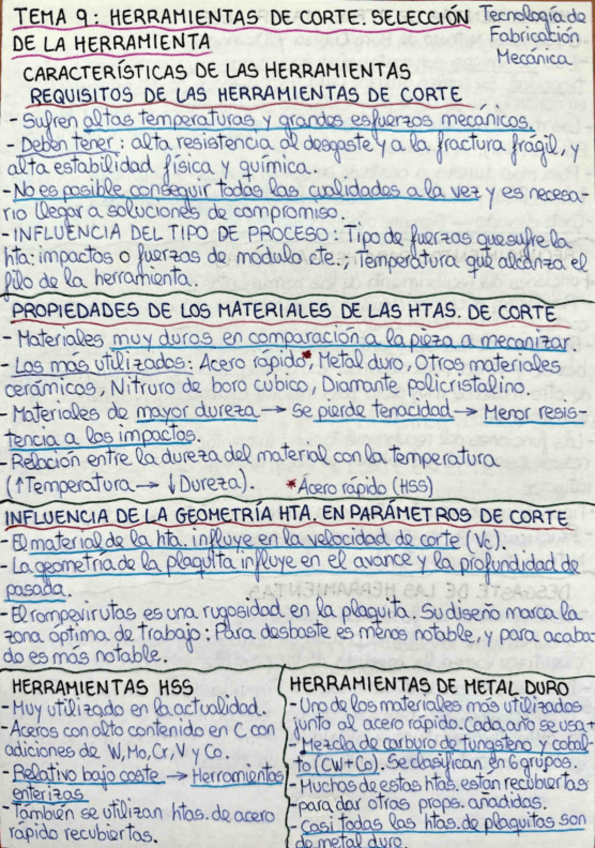 TEMA 9: HERRAMIENTAS DE CORTE. SELECCIÓN
DE LA HERRAMIENTA
Tecnología de
Fabricación
Mecánica
CARACTERÍSTICAS DE LAS HERRAMIENTAS
REQUISITOS DE LAS HERRAMIENTAS DE CORTE
- Sufren altas temperaturas y grandes esfuerzos mecánicos.
- Deben tener: alta resistencia al desgaste y a la fractura frágil, y
alta estabilidad física y química.
- No es posible conseguir todas las cualidades a la vez y es necesa-
rio llegar a soluciones de compromiso.
- INFLUENCIA DEL TIPO DE PROCESO: Tipo de fuerzas que sufre la
hta: impactos o fuerzas de módulo cte.; Temperatura que alcanza el
filo de la herramienta.
PROPIEDADES DE LOS MATERIALES DE LAS HTAS. DE CORTE
- Materiales muy duros en comparación a la pieza a mecanizar.
- Los más utilizados: Acero rápido*, Metal duro, Otros materiales
cerámicos, Nitruro de boro cúbico, Diamante policristalino.
- Materiales de mayor dureza → Se pierde tenacidad → Menor resis-
tencia a los impactos.
- Relación entre la dureza del material con la temperatura
(↑Temperatura → ↓Dureza). *Acero rápido (HSS)
INFLUENCIA DE LA GEOMETRÍA HTA. EN PARÁMETROS DE CORTE
- El material de la hta. influye en la velocidad de corte (Vc).
- La geometría de la plaquita influye en el avance y la profundidad de
pasada.
- El rompevirutas es una rugosidad en la plaquita. Su diseño marca la
zona óptima de trabajo: Para desbaste es menos notable, y para acaba-
do es más notable.
HERRAMIENTAS HSS
- Muy utilizado en la actualidad.
- Aceros con alto contenido en C con
adiciones de W, Mo, Cr, V y Co.
- Relativo bajo coste → Herramientas
enterizas
- También se utilizan htas. de acero
rápido recubiertas.
HERRAMIENTAS DE METAL DURO
- Uno de los materiales más utilizados
junto al acero rápido. Cada año se usa +
- Mezcla de carburo de tungsteno y cobal-
to (CW+Co). Se clasifican en 6 grupos.
- Muchas de estas htas. están recubiertas
para dar otras props. añadidas.
- Casi todas las htas. de plaquitas son
de metal duro.